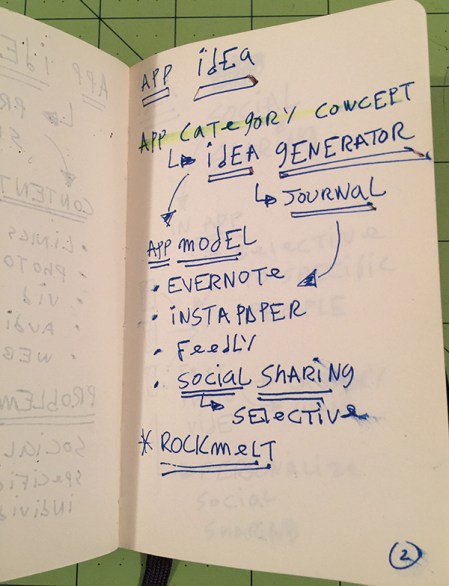 APP idEA
APP CATEgORY CONCEPT
↳ idEA gENERATOR
↳ JOURNAL
APP modEL
• EVERNOTE
• iNSTAPAPER
• FeedLY
• SOCiAL SHARiNg
↳ SELecTive
* ROCKmeLT
2